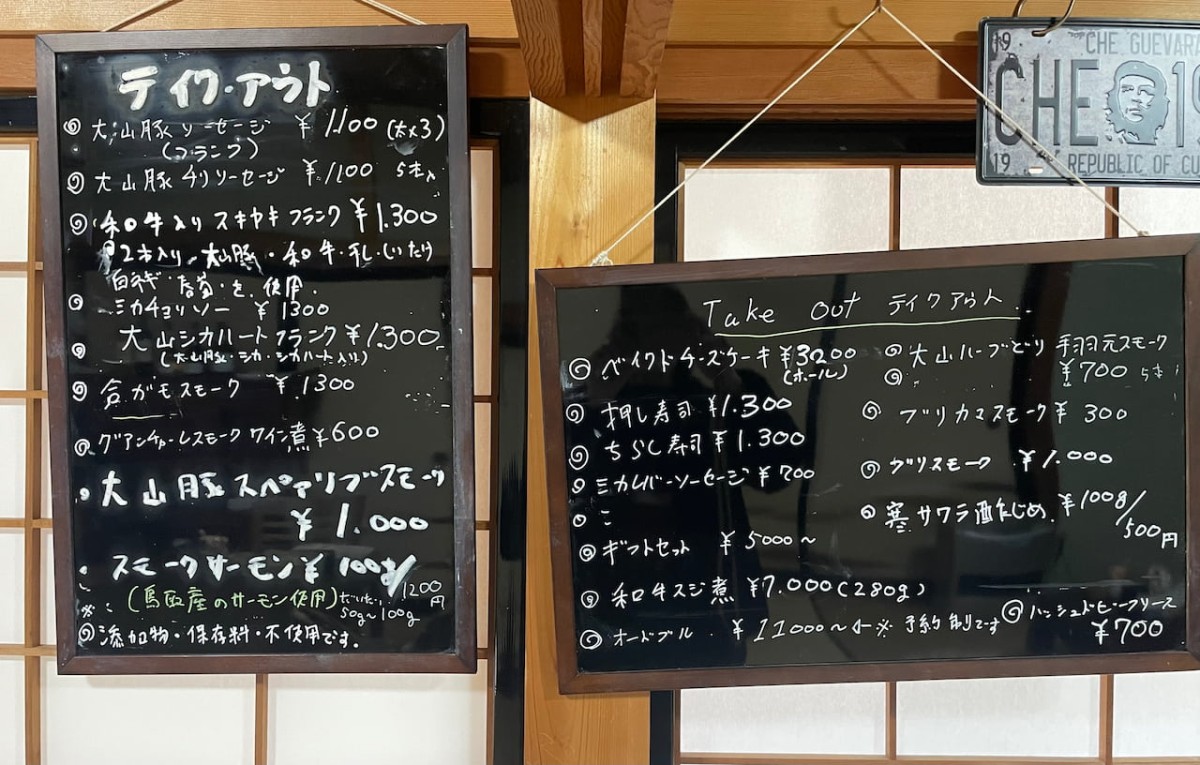 テイク・アウト
大山豚ソーセージ ¥1,100 (太×3)
(フランク)
大山豚チリソーセージ ¥1,100 5本入
和牛入りスキヤキフランク ¥1.300
2本入り 大山豚・和牛・干ししいたけ
白ネギ・春菊・を使用.
シカチョリソー ¥1300
大山シカハートフランク ¥1.300
(大山豚・シカ・シカハート入り)
合がモスモーク ¥1300
グアンチャーレスモーク ワイン煮 ¥600
大山豚スペアリブスモーク
¥1.000
スモークサーモン ¥100g/
1200円
※ (鳥取産のサーモン使用) だいたい 50g~100g
添加物・保存料・不使用です。
Take Out テイクアウト
ベイクドチーズケーキ ¥3200
(ホール)
押し寿司 ¥1.300
ちらし寿司 ¥1.300
シカレバーソーセージ ¥700
ギフトセット ¥5000~
和牛スジ煮 ¥7.000(280g)
オードブル ¥11000~←※予約制です
大山ハーブどり 手羽元スモーク
¥700 5本
ブリカマスモーク ¥300
ブリスモーク ¥1.000
寒サワラ酒たじめ ¥100g/
500円
ハッシュドビーフソース
¥700
19 CHE GUEVAR
CHE 1
19 REPUBLIC OF CU